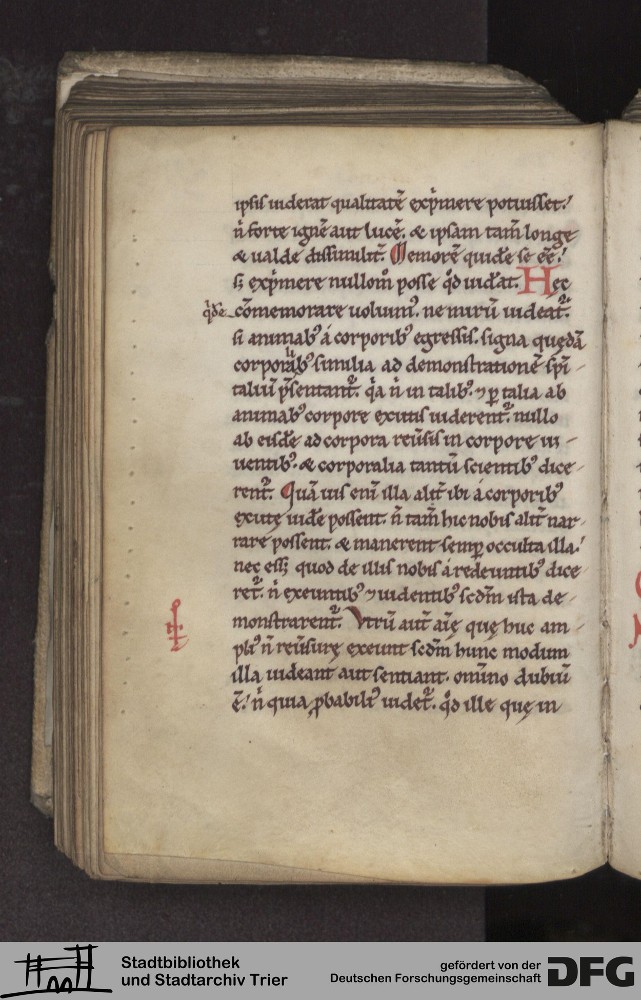 ipsis uiderat qualitatē exp̄mere potuisset.'
n̄ forte ignē aut lucē. & ipsam tam̄ longe
& ualde dissimilit̄. Memorē quidē se eē.'
s; exp̄mere nullom̄ posse qd̄ uidat. Hec
qd̄e cōmemorare uoluim᷒. ne mirū uideat᷑.
si animab᷒ á corporib᷒ egressis. signa quędā
corporib᷒ similia ad demonstrationē sp̄i
taliū p̄sentant᷑. q̄a n̄ in talib᷒. ⁊ ꝑ talia ab
animab᷒ corpore exutis uiderent᷑. nullo
ab eisdē ad corpora reūsis in corpore ui
uentib᷒. & corporalia tantū scientib᷒ dice
rent᷑. Quāuis enī illa alit̄ ibi á corporib᷒
exutę uidē possent. n̄ tam̄ hic nobis alit̄ nar
rare possent. & manerent semꝑ occulta illa.'
nec ess; quod de illis nobis á redeuntib᷒ dice
ret᷑. n̄ exeuntib᷒ ⁊ uidentib᷒ scdm̄ ista de
monstrarent᷑. Vtrū aut̄ aīę quę huc am
pli᷒ n̄ reūsurę exeunt scdm̄ hunc modum
illa uideant aut sentiant. omīno dubiū
ē.' n̄ quia ꝓbabili᷒ uidet᷑. qd̄ ille quę in
Stadtbibliothek
und Stadtarchiv Trier
gefördert von der
Deutschen Forschungsgemeinschaft
DFG